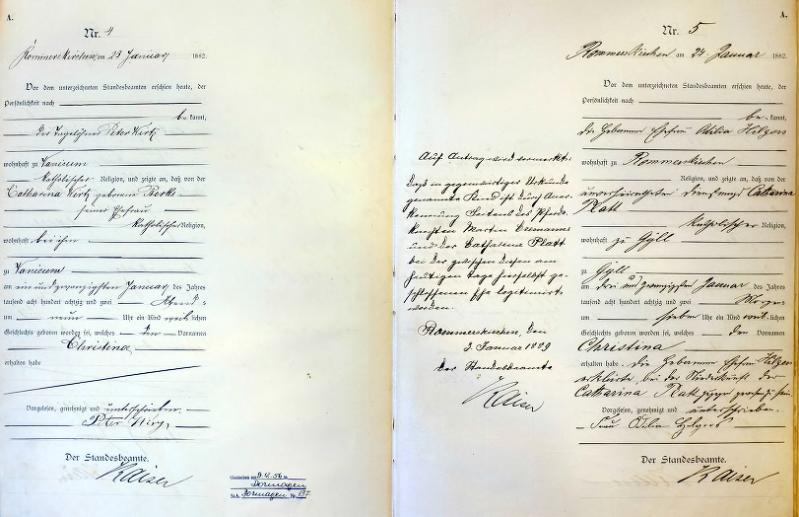 A.
Nr. 4
Rommerskirchen, am 23 Januar 1882.
Vor dem unterzeichneten Standesbeamten erschien heute, der
Persönlichkeit nach
be kannt,
der Tagelöhner Peter Wirtz
wohnhaft zu Vanicum
katholischer Religion, und zeigte an, daß von der
Catharina Wirtz geborene
seiner Ehefrau
katholischer Religion,
wohnhaft bei ihm
zu Vanicum
am ein und zwanzigsten Januar des Jahres
tausend acht hundert achtzig und zwei Abends
um neun Uhr ein Kind weib lichen
Geschlechts geboren worden sei, welches den Vornamen
Christina
erhalten habe
Vorgelesen, genehmigt und unterschrieben
Peter Wirtz
Der Standesbeamte.
Kaiser
Gestorben am
Dormagen
Dormagen
Auf Antrag wird vermerkt:
daß in gegenwärtiger Urkunde
genannte Kind ist durch Aner-
kennung Seitens des
Martin
und der Catharina Platt
bei der zwischen diesen am
heutigen Tage hierselbst ge-
schlossenen Ehe legitimirt
worden.
Rommerskirchen, den
3. Januar 1889
der Standesbeamte
Kaiser
A.
Nr. 5
Rommerskirchen am 24 Januar 1882.
Vor dem unterzeichneten Standesbeamten erschien heute, der
Persönlichkeit nach
be kannt,
die Hebamme Ehefrau Odilia Hilgers
wohnhaft zu Rommerskirchen
Religion, und zeigte an, daß von der
unverheiratheten Dienstmagd Catharina
Platt
katholischer Religion,
wohnhaft zu Gill
zu Gill
am drei und zwanzigsten Januar des Jahres
tausend acht hundert achtzig und zwei Morgens
um sieben Uhr ein Kind weib lichen
Geschlechts geboren worden sei, welches den Vornamen
Christina
erhalten habe. Die Hebamme Ehefrau Hilgers
erklärte bei der Niederkunft der
Catharina Platt zugegen gewesen zu sein
Vorgelesen, genehmigt und unterschrieben
Frau Odilia Hilgers
Der Standesbeamte.
Kaiser